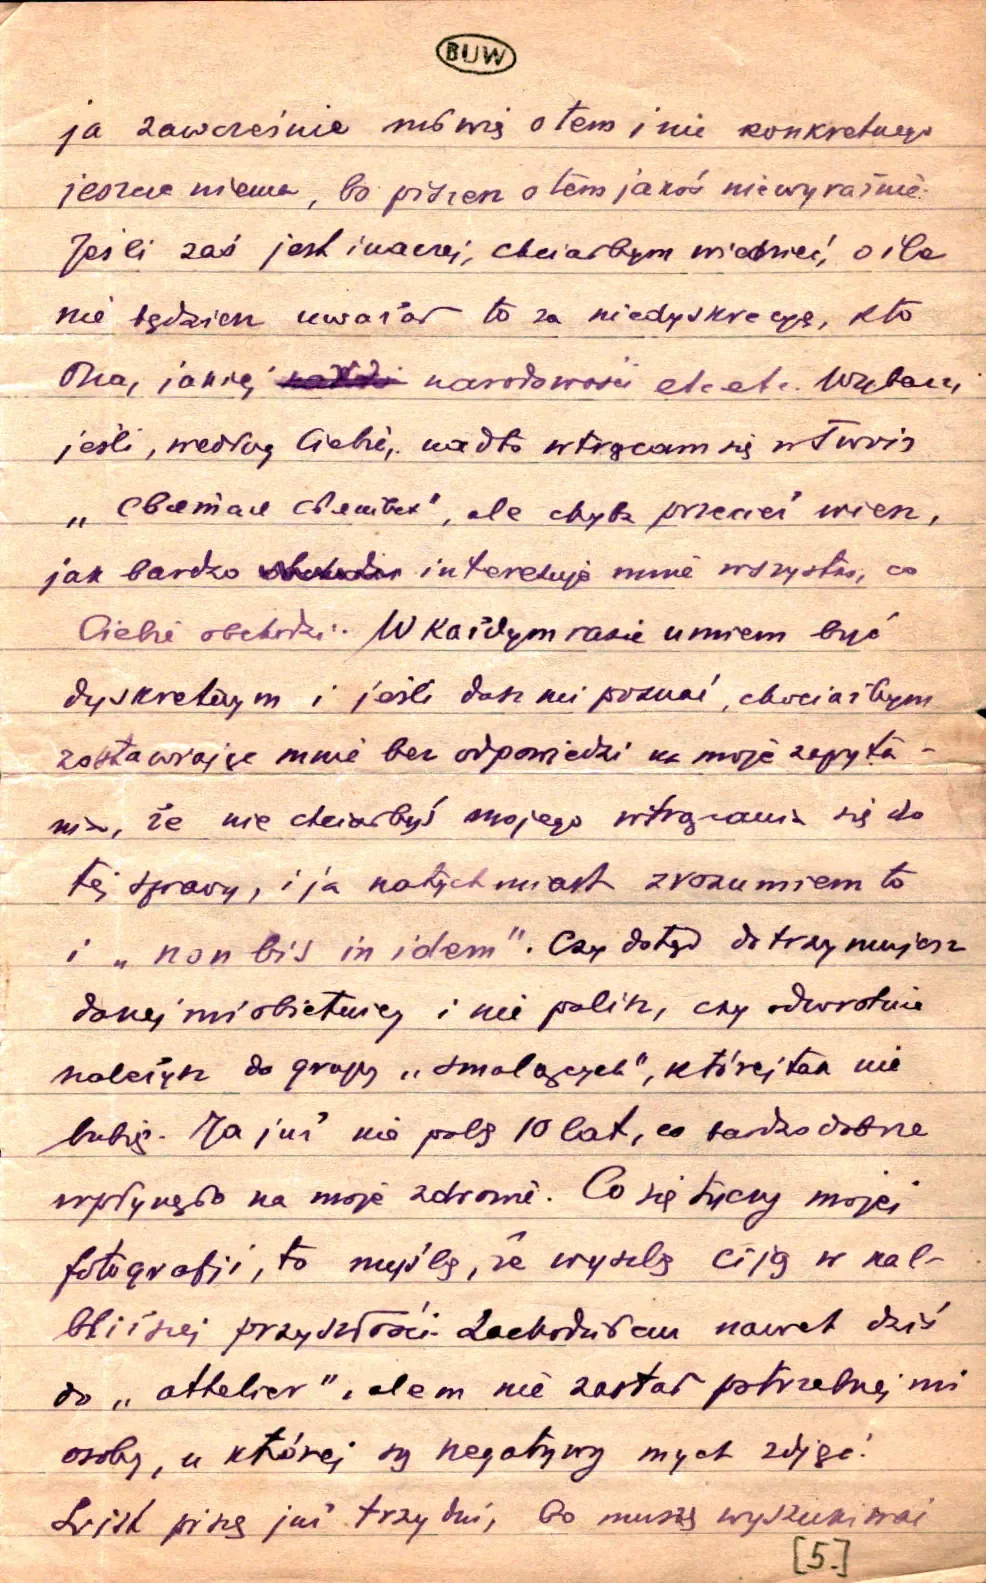 BUW
ja zawcześnie mówię o tem i nic konkretnego
jeszcze niema, bo piszesz o tem jakoś niewyraźnie.
Jeśli zaś jest inaczej, chciałbym wiedzieć, o ile
nie będziesz uważał to za niedyskrecję, kto
Ona, jakiej narodowości etc etc. Wybacz,
jeśli, według Ciebie, nadto wtrącam się w Twoje
ale chyba przecież wiesz,
jak bardzo interesuje mnie wszystko, co
Ciebie obchodzi. W każdym razie umiem być
dyskretnym i jeśli dasz mi poznać, chociażbym
zostawiając mnie bez odpowiedzi na moje zapyta-
nia, że nie chciałbyś mojego wtrącania się do
tej sprawy, i ja natychmiast zrozumiem to
i „non bis in idem". Czy dotąd dotrzymujesz
danej mi obietnicy i nie palisz, czy odwrotnie
należysz do grupy „smalących", której tak nie
lubię. Ja już nie palę 10 lat, co bardzo dobrze
wpłynęło na moje zdrowie. Co się tyczy mojej
fotografji, to myślę, że wyszlę Ci ją w naj-
bliższej przyszłości. Zachodziłem nawet dziś
do „attelier", alem nie zastał potrzebnej mi
osoby, u której są negatywy mych zdjęć.
List piszę już trzy dni, bo muszę wyszukiwać
[5.]